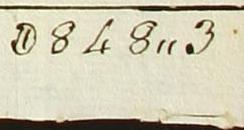 D 8 4 8 〃 3